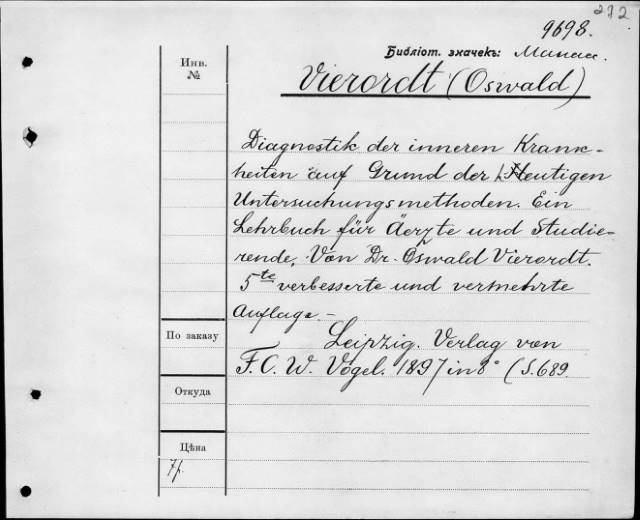 272.
9698.
Библіот. значекъ:
Инв.
№
Vierordt (Oswald)
Diagnostik der inneren Krank-
heiten auf Grund der heutigen
Untersuchungsmethoden. Ein
Lehrbuch für Äerzte und Studie-
rende, Von Dr. Oswald Vierordt.
5te verbesserte und vermehrte
Auflage. —
По заказу
Leipzig. Verlag von
F. C. W. Vogel. 1897 in 8° (S. 689.
Откуда
Цѣна
7р.